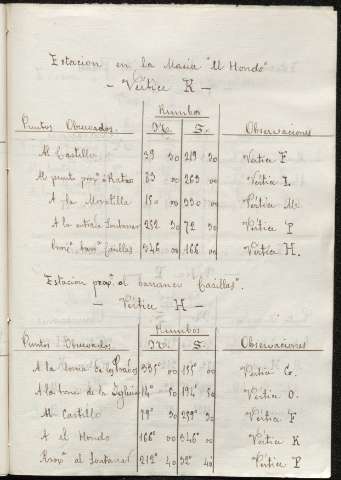 Estacion en la Masia "El Hondo"
- Vértice K -
Rumbos
Puntos Observados. N. S. Observaciones
Al Castillo 39 30 219 30 Vertice F.
Al punto prox° á Ratas 83 00 263 00 Vertice L.
A la Montilla 150 00 330 00 Vértice M.
A la entrada Fontanar 252 30 72 30 Vertice P
Prox° barr° Casillas 346 00 166 00 Vertice H.
Estación prox° al barranco Casillas".
- Vértice H -
Rumbos
Puntos Observados N. S. Observaciones
A la Torre de los Prados 335° 00 155° 00 Vertice G.
A la torre de la Iglesia 14° 50 194° 50 Vertice O.
Al Castillo 79° 30 259° 30 Vértice F
A el Hondo 166° 00 346° 00 Vertice K
Prox° al Fontanar 212° 40 32° 40 Vertice P